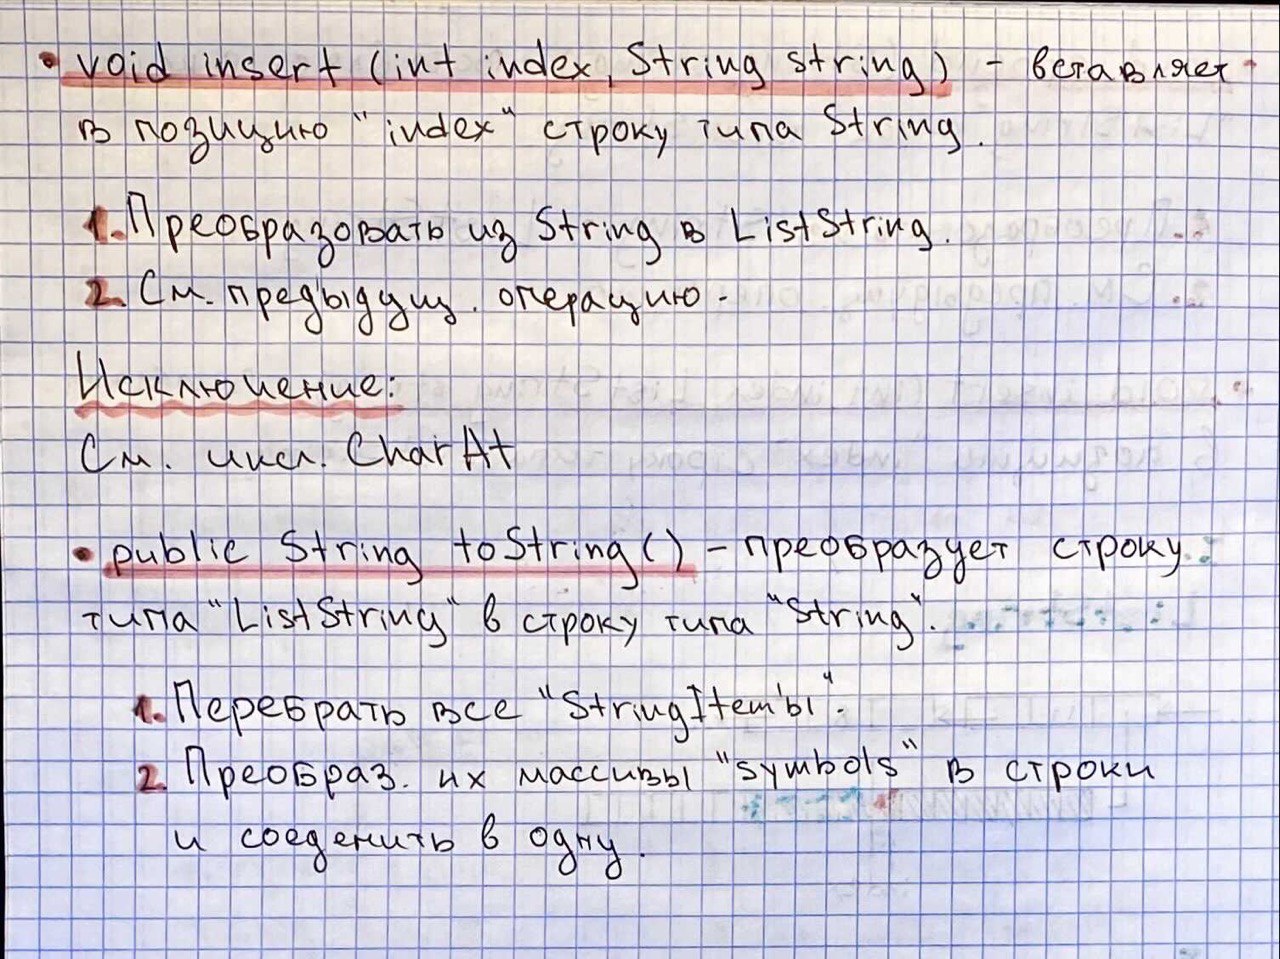 • void insert (int index, String string) - вставляет
в позицию "index" строку типа String.
1. Преобразовать из String в ListString.
2. См. предыдущ. операцию.
Исключение:
См. искл. CharAt
• public String toString() - преобразует строку
типа "ListString" в строку типа "String".
1. Перебрать все "StringItem'ы".
2. Преобраз. их массивы "symbols" в строки
и соеденить в одну.